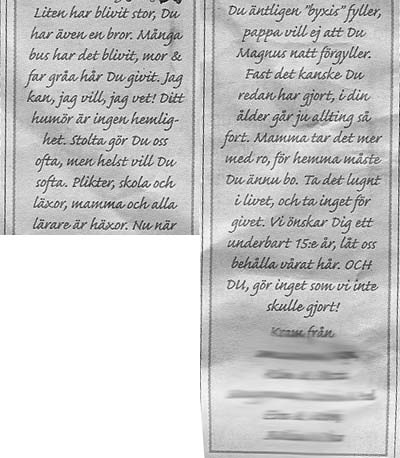 Liten har blivit stor, Du
har även en bror. Många
bus har det blivit, mor &
far gråa hår Du givit. Jag
kan, jag vill, jag vet! Ditt
humör är ingen hemlig-
het. Stolta gör Du oss
ofta, men helst vill Du
softa. Plikter, skola och
läxor, mamma och alla
lärare är häxor. Nu när
Du äntligen "byxis" fyller,
pappa vill ej att Du
Magnus natt förgyller.
Fast det kanske Du
redan har gjort, i din
ålder går ju allting så
fort. Mamma tar det mer
med ro, för hemma måste
Du ännu bo. Ta det lugnt
i livet, och ta inget för
givet. Vi önskar Dig ett
underbart 15:e år, låt oss
behålla vårat hår. OCH
DU, gör inget som vi inte
skulle gjort!
Kram från